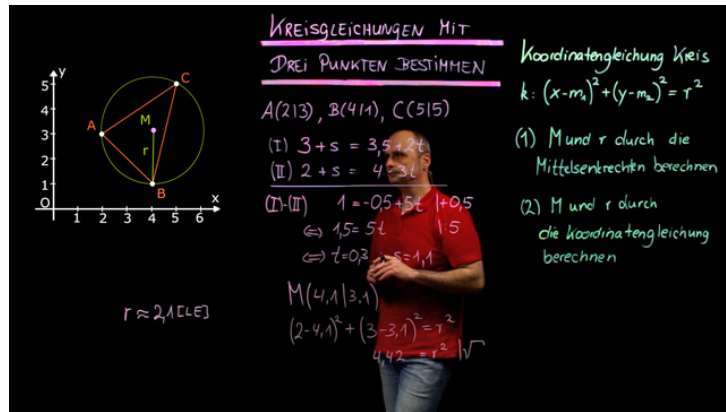 KREISGLEICHUNGEN MIT
DREI PUNKTEN BESTIMMEN
y
5
4
3
2
1
0
1 2 3 4 5 6
x
A
B
C
M
r
r ≈ 2,1 [LE]
A(2|3), B(4|1), C(5|5)
(I) 3 + s = 3,5 + 2t
(II) 2 + s = 4 - 3t
(I)-(II) 1 = -0,5 + 5t |+0,5
⇔ 1,5 = 5t |:5
⇔ t = 0,3 s = 1,1
M(4,1|3,1)
(2-4,1)² + (3-3,1)² = r²
4,42 = r² |√
Koordinatengleichung Kreis
k: (x-m₁)² + (y-m₂)² = r²
(1) M und r durch die
Mittelsenkrechten berechnen
(2) M und r durch
die Koordinatengleichung
berechnen